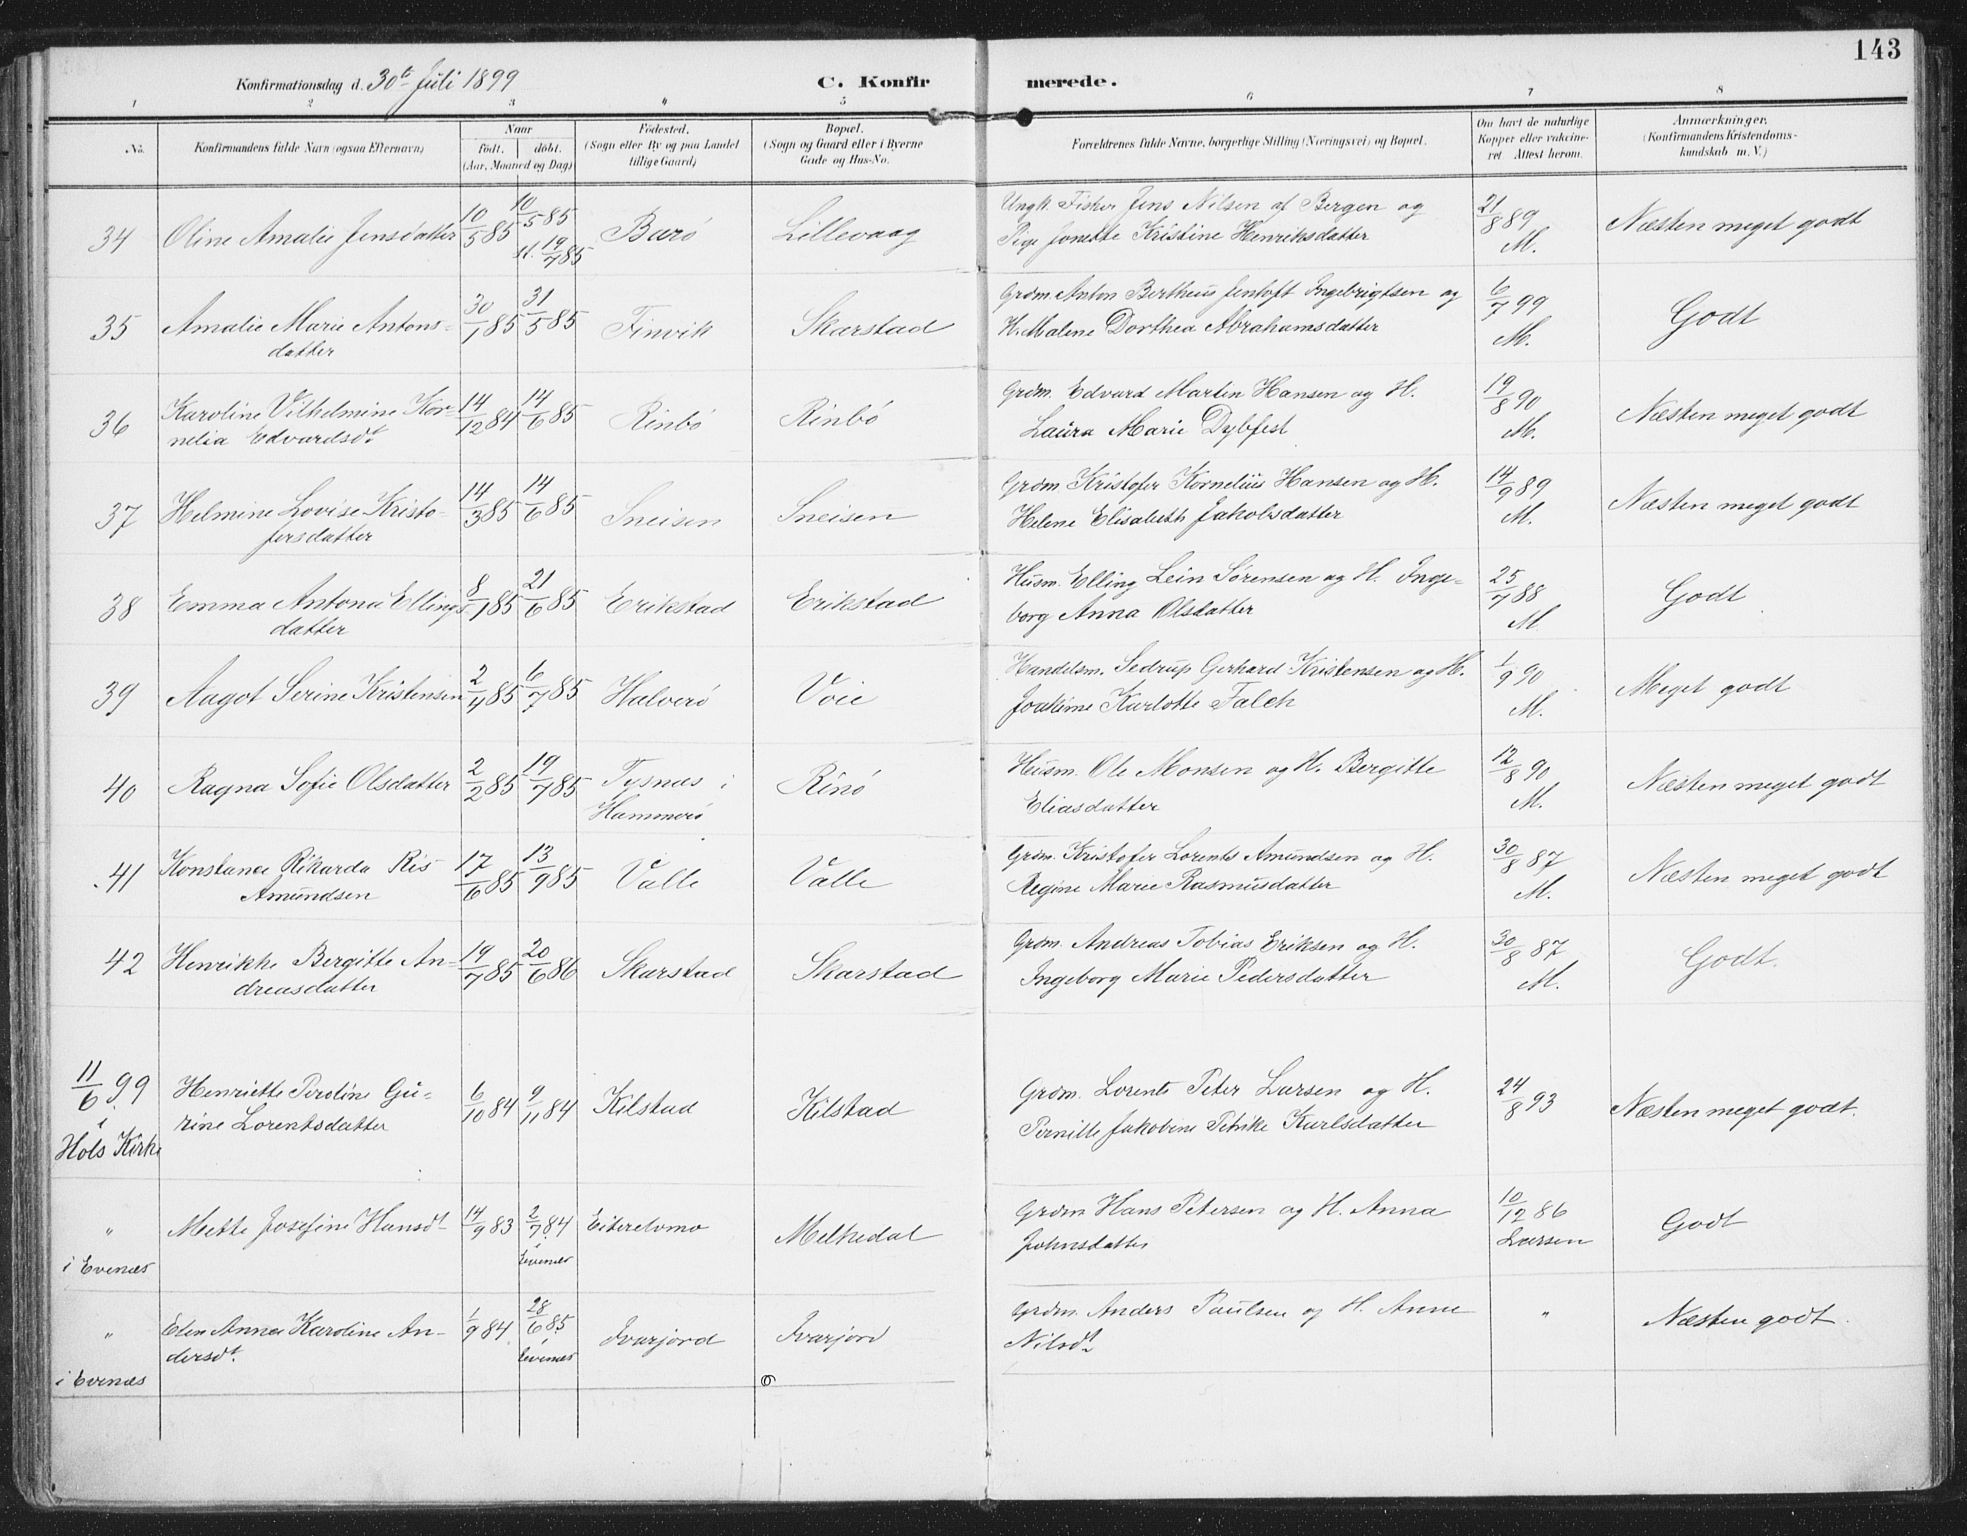 143
Konfirmationsdag d. 30te Juli 1899 C. Konfirmerede.
1 2 3 4 5 6 7 8
No. Konfirmandens fulde Navn (ogsaa Efternavn)
Naar
födt. döbt.
(Aar, Maaned og Dag)
Födested.
(Sogn eller By og paa Landet
tillige Gaard)
Bopæl.
(Sogn og Gaard eller i Byerne
Gade og Hus-No.
Forældrenes fulde Navne, borgerlige Stilling (Næringsvei) og Bopæl.
Om havt de naturlige
Kopper eller vakcine-
ret Attest herom.
Anmærkninger.
(Konfirmandens Kristendoms-
kundskab m. V.)
34 Oline Amalie Jensdatter 10/5 85 10/5 85 Barö Lillevaag Ungk. Fisker Jens Nilsen af Bergen og 21/8 89 Næsten meget godt
st. 19/7 85 Pige Jonette Kristine Henriksdatter M.
35 Amalie Marie Antons- 30/1 85 31/5 85 Finvik Skarstad Grdm. Anton Bertheus Jentoft Ingebrigtsen og 6/7 99 Godt
datter H. Malene Dorthea Abrahamsdatter M.
36 Karoline Vilhelmine Kor- 14/12 84 14/6 85 Rinbö Rinbö Grdm. Edvard Martin Hansen og H. 19/8 90 Næsten meget godt
nelia Edvardsdt Laura Marie Dybfest M.
37 Helmine Lovise Kristo- 14/3 85 14/6 85 Sneisen Sneisen Grdm. Kristofer Kornelius Hansen og H. 14/9 89 Næsten meget godt
fersdatter Helene Elisabeth Jakobsdatter M.
38 Emma Antona Ellings 8/1 85 21/6 85 Erikstad Erikstad Husm. Elling Lein Sörensen og H. Inge- 25/7 88 Godt
datter borg Anna Olsdatter M
39 Aagot Serine Kristensen 2/4 85 6/7 85 Halverö Voie Handelsm. Sedrup Gerhard Kristensen og H. 1/9 90 Meget godt
Joakime Karlotte Falch M.
40 Ragna Sofie Olsdatter 2/2 85 19/7 85 Tysnæs i Rinö Husm. Ole Monsen og H. Bergitte 12/8 90 Næsten meget godt
Hammerö Eliasdatter M.
41 Konstance Rikarda Ris 17/6 85 13/9 85 Valle Valle Grdm. Kristofer Lorents Amundsen og H. 30/8 87 Næsten meget godt
Amundsen Regine Marie Rasmusdatter M.
42 Henrikke Bergitte An- 19/7 85 20/6 86 Skarstad Skarstad Grdm. Andreas Tobias Eriksen og H. 30/8 87 Godt.
dreasdatter Ingeborg Marie Pedersdatter M.
11/6 99 Henriette Gu- 6/10 84 9/11 84 Kilstad Kilstad Grdm. Lorents Peter Larsen og H. 24/8 93 Næsten meget godt.
i rine Lorentsdatter Pernille Jakobine Petrike Karlsdatter
Hols Kirke
" Mette Josefine Hansdt 14/9 83 2/7 84 Melkedal Grdm Hans Petersen og H. Anna 10/12 86 Godt
i Evenæs i Evenæs Johnsdatter Larsen
" Elen Anna Karoline An- 1/9 84. 28/6 85. Ivarjord Ivarjord Grdm. Anders Paulsen og H. Anne " Næsten godt.
dersdt. i Evenæs Nilsdt
i Evenæs